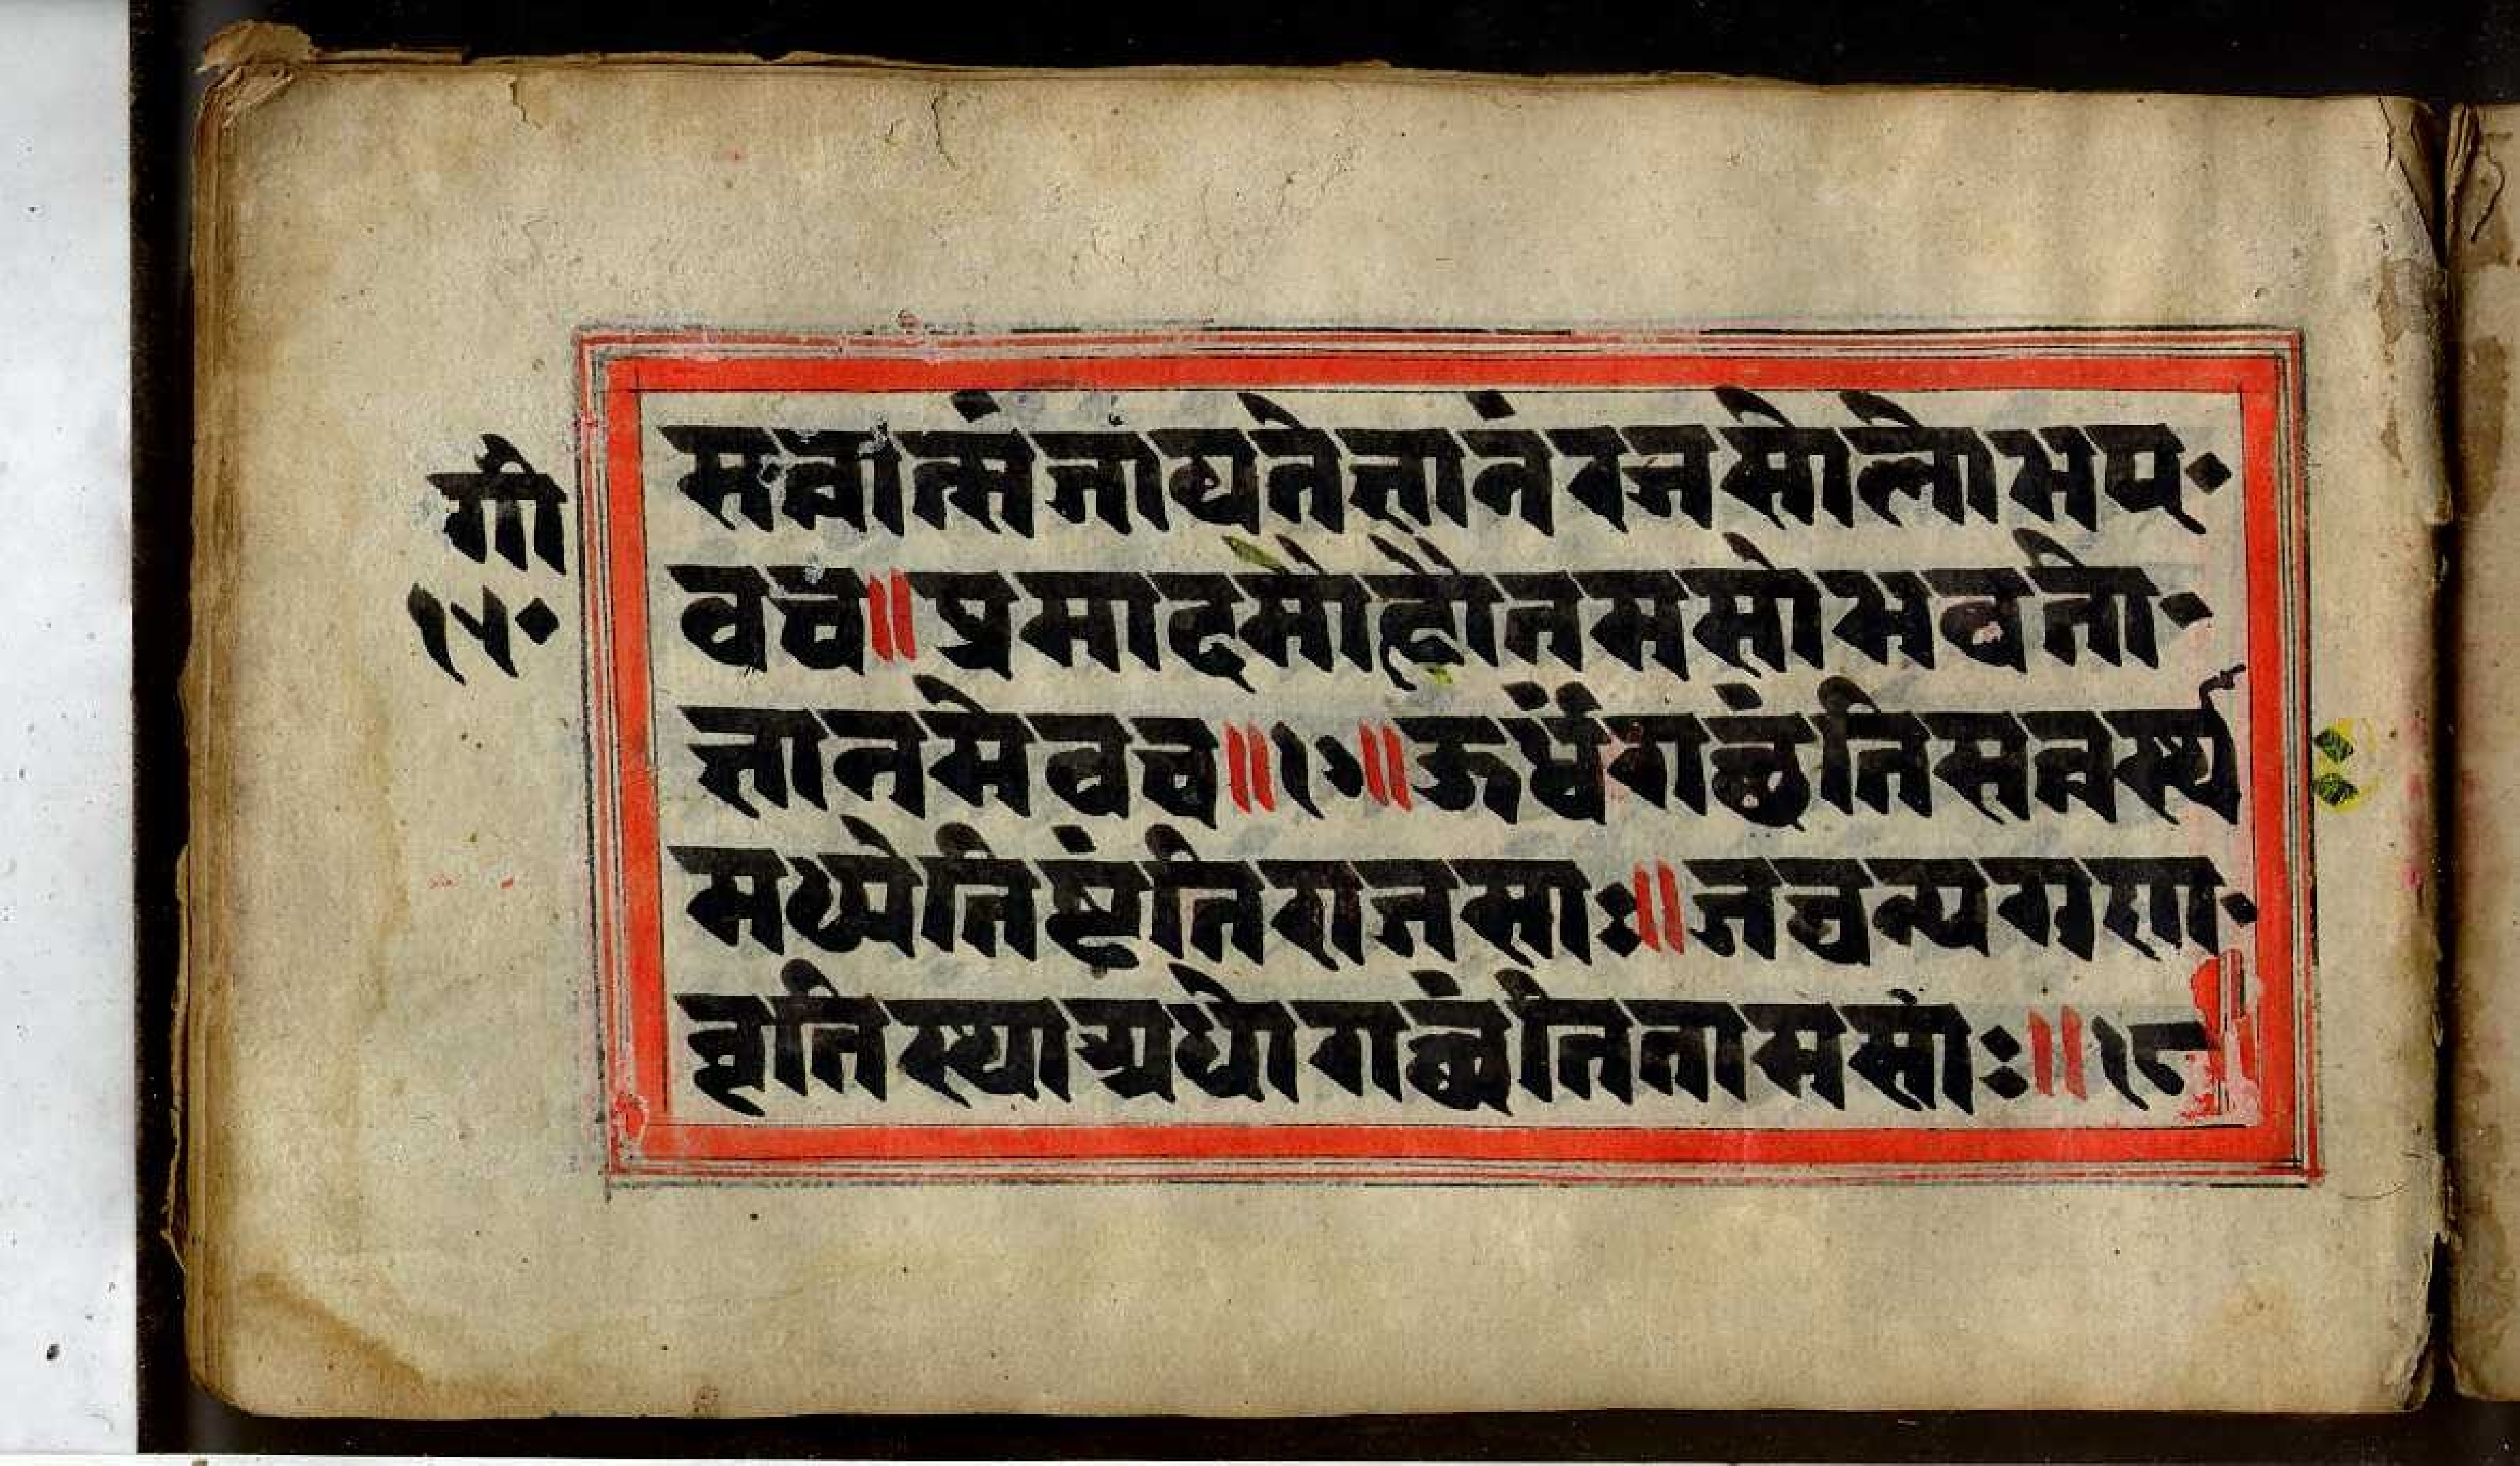 गी
१५॰
सत्वात्संजायतेज्ञानंरजसोलोभए॰
वच॥प्रमादमोहौतमसोभवतो॰
ज्ञानमेवच॥१७॥ऊर्ध्वंगछंतिसत्वस्था
मध्येतिष्टंतिराजसाः॥जघन्यगुण॰
वृतिस्थाअधोगछंतितामसाः॥१८